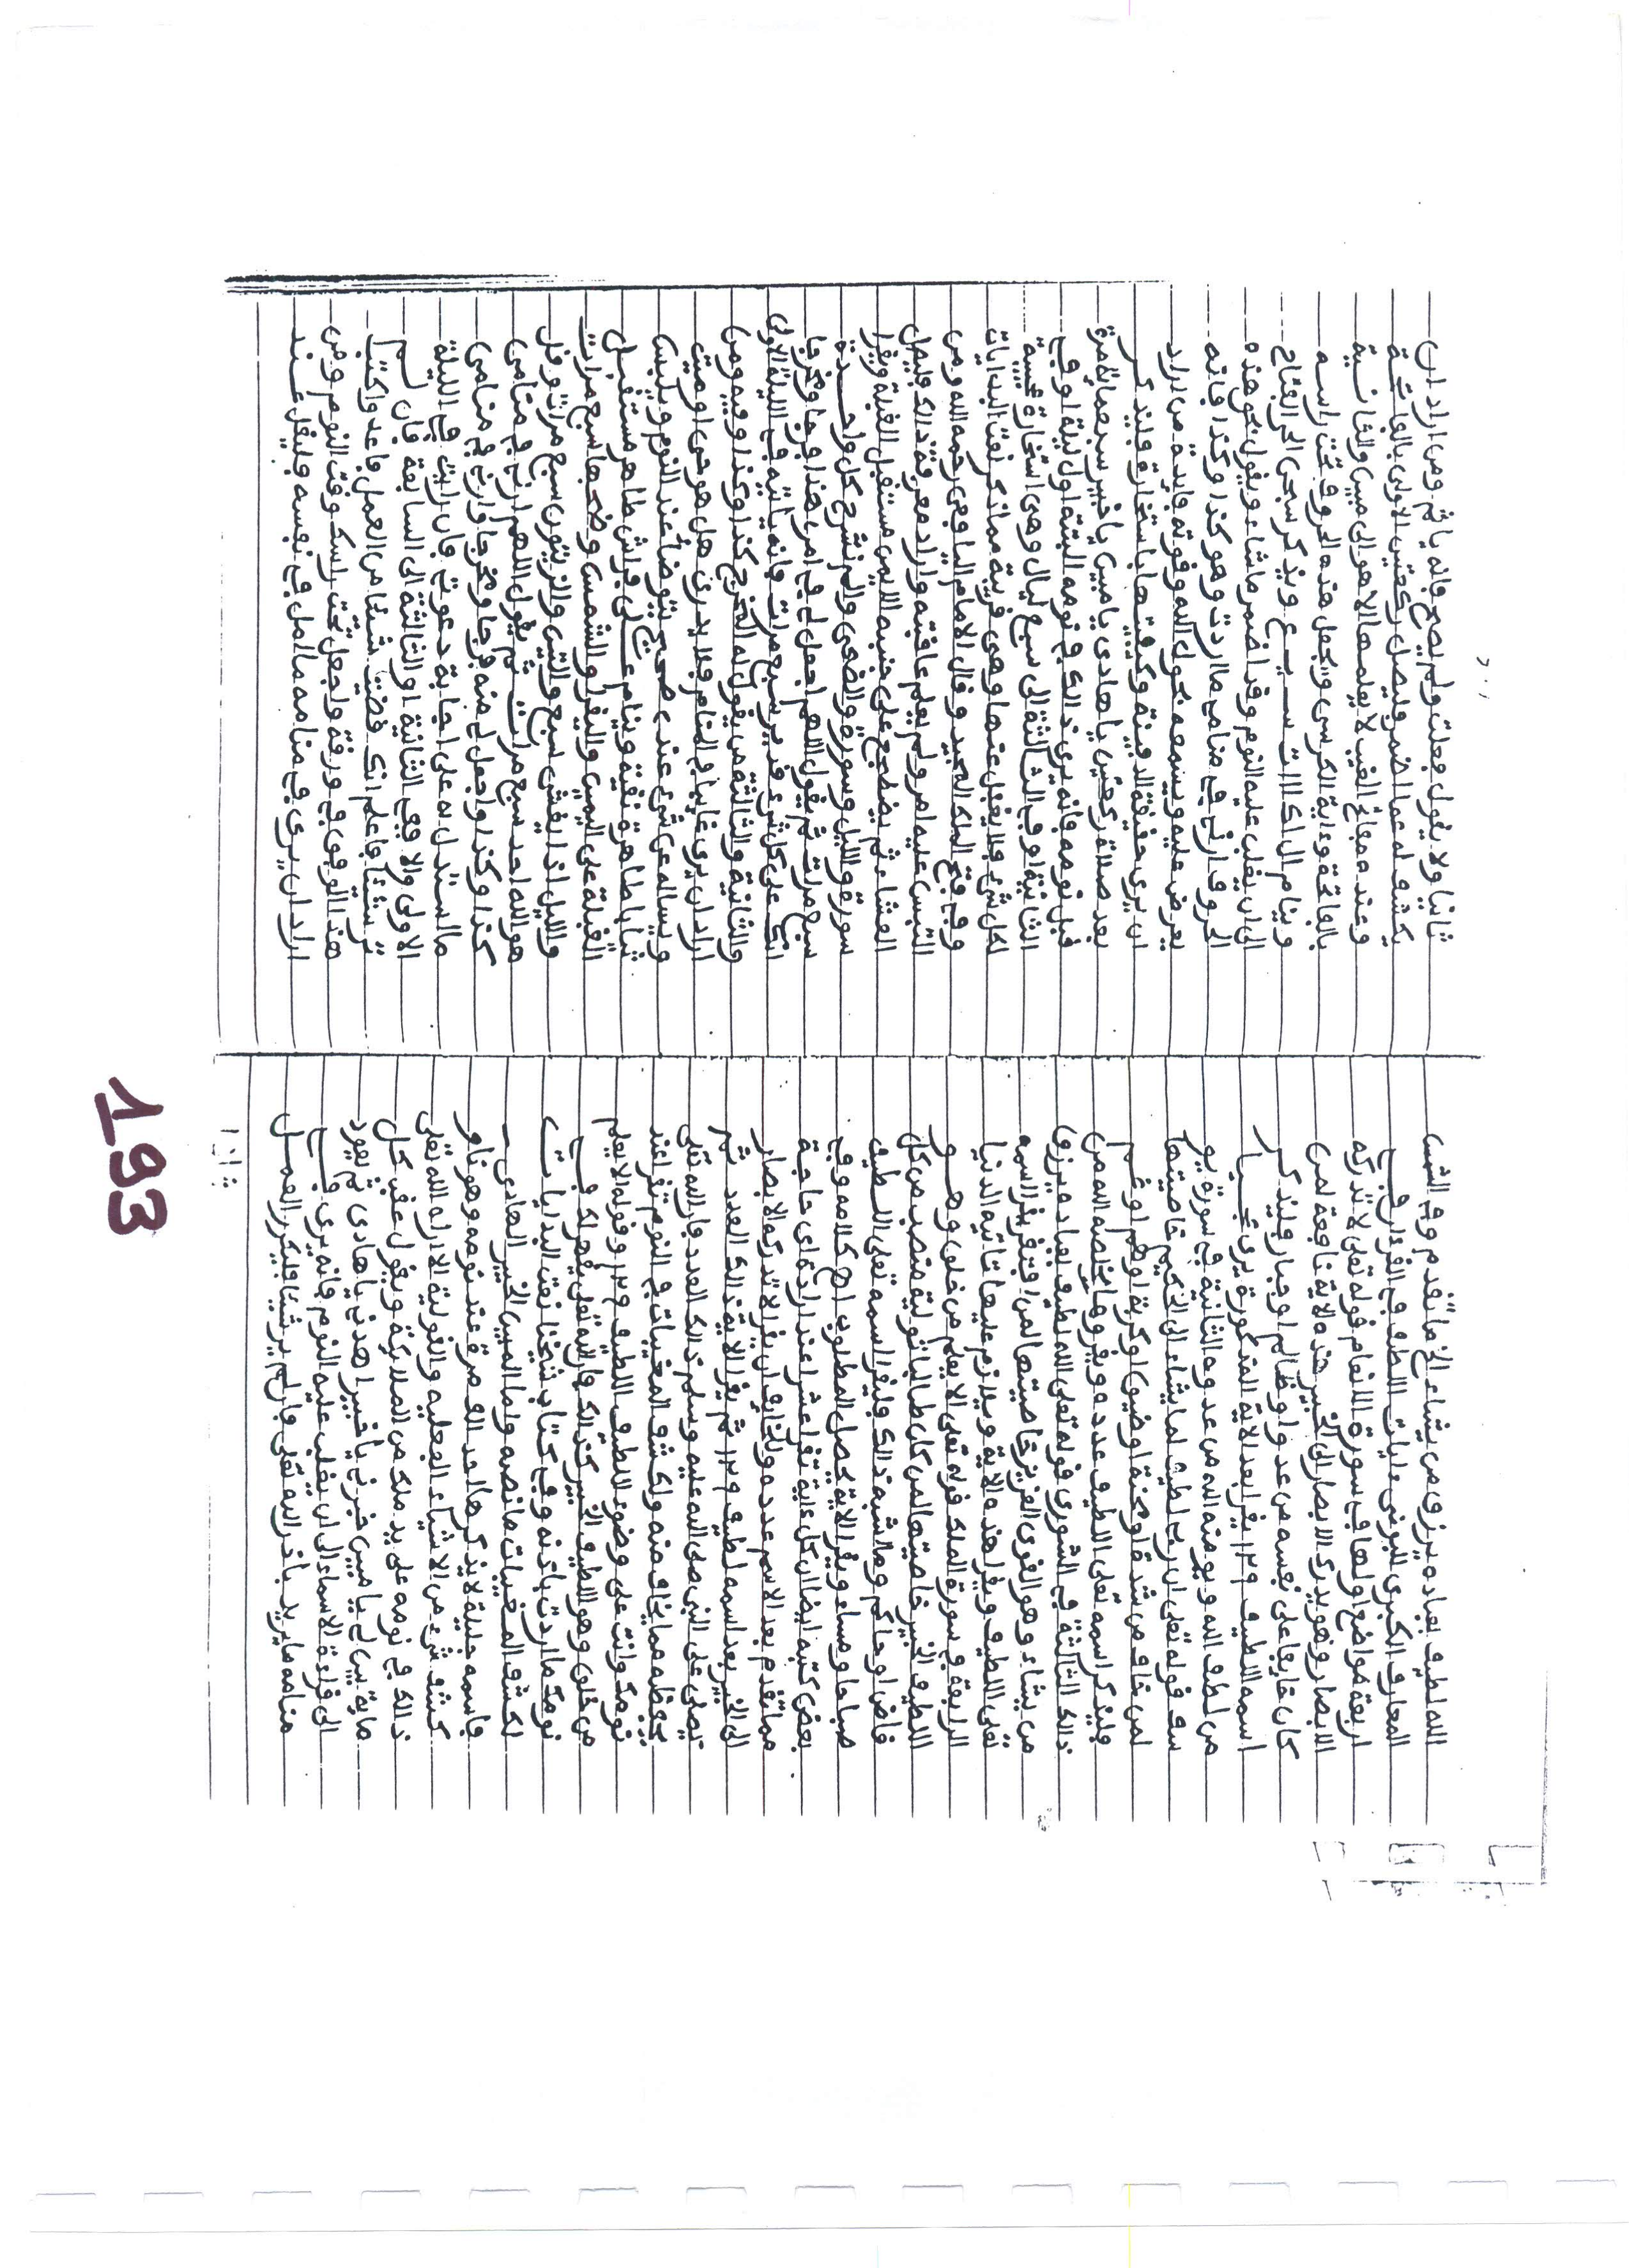 الله لطيف بعباده يرزق من يشاء الخ ما تقدم وفي الشمس
المعارف الكبرى للبوني ءايات اللطف في القرءان في
اربعة مواضع اولها في سورة الانعام قوله تعلى لا تدركه
الابصار وهو يدرك الابصار الى الخبير هذه الاية نافعة لمن
كان خايفا على نفسه من عدو او ظالم او جبار فليذكر
اسمه اللطيف ١٢٩ يقرا بعد الاية المذكورة يرى عجبا
من لطف الله ويومنه الله من عدوه الثانية في سورة يو
سف قوله تعلى ان ربي لطيف لما يشاء الى الحكيم خاصيتها
لمن خاف من شدة او محنة او ضيق او كربة او هم او غم
فليذكر اسمه تعلى اللطيف عدده ويقروها يخلصه الله من
ذالك الثالثة في الشورى قوله تعلى الله لطيف بعباده يرزق
من يشاء وهو القوي العزيز خاصيتها لمن افتقر يقرا اسمه
تعلى اللطيف ويقرا هذه الاية ويلازم عليها تاتيه الدنيا
الرابعة في سورة الملك قوله تعلى الا يعلم من خلق وهو
اللطيف الخبير خاصيتها لمن كان طالبا تولية منصب من كل
قاض او حاكم وما اشبه ذالك فليقرا اسمه تعلى اللطيف
صباحا ومساء ويقرا الاية يحصل المطلوب اهـ كلامه وفي
بعض كتبه ايضا ان كل ءاية تقرا عشرا عند ارادة اي حاجة
مما تقدم بعد الاسم عدده وللخايف ان يقرا لا تدركه الابصار
الى الخبير بعد اسمه لطيف ١٢٩ ثم يقرا الاية ذالك العدد ثم
يصلي على النبي صلى الله عليه وسلم ذالك العدد فان الله تعلى
يحفظه مما يخاف منه ولكشف المغيبات في النوم تقرا عند
نومك وانت على وضوء اللطيف ١٢٩ وقوله الا يعلم
من خلق وهو اللطيف الخبير كذالك فان الله تعلى يظهر لك في
نومك ما اردت باذنه وفي كتاب شيخنا نعت البدايات
لكشف المغيبات ما نصه واما المبين الخبير الهادي
فاسمه جليلة لا يذكرها احد الف مرة عند نومه وهو ناو
كشف شيء من الاشياء الفعلية والقولية الا اراه الله تعلى
ذالك في نومه على يد ملك من الملائكة ويقول عقب كل
ماية بين لي يا مبين خبرني يا خبير اهدني يا هادي ثم يعود
الى قراءة الاسماء الى ان يغلب عليه النوم فانه يرى في
منامه ما يريد باذن الله تعلى فان لم ير شيئا فليكرر العمل
ثانيا
ثانيا ولا يقول فعلت ولم يصح فانه ياثم ومن اراد ان
يكشف له عما اضمر فليصل ركعتين الاولى بالفاتحة
وعنده مفاتح الغيب لا يعلمها الا هو الى مبين والثانية
بالفاتحة وءاية الكرسي ويجعل هذه الحروف تحت راسه
وينام ال اك ويذكر سبحن الفتاح
الى ان يغلب عليه النوم وقد اضمر ما شاء ويقول بحق هذه
الحروف ارني في منامي ما اردت وهو كذا وكذا فانه
يعرض عليه ويسمعه بحول الله وقوته فايدة من اراد
ان يرى حقيقة الدفينة وكيفيتها باستخارة فليذكر
بعد صلاة ركعتين يا هادي يا مبين يا خبير سبعماية مرة
قبل نومه فانه يرى ذالك في نومه البتة اول ليلة او في
الثانية او في الثالثة الى سبع ليال وهي استخارة عجيبة
لكل شيء فلا يغفل عنها وهي قريبة مما ذكر نعت البدايات
وفي فتح الملك المجيد وقال الامام اليافعي رحمه الله من
التبس عليه امر ولم يعلم عاقبته واراد معرفة ذالك فليصل
العشاء ثم يضطجع على جنبه الايمن مستقبل القبلة ويقرا
سورة والليل وسورة والضحى والم نشرح كل واحدة
سبع مرات ثم يقول اللهم اجعل لي في امري هذا فرجا ومخرجا
انك على كل شيء قدير سبع مرات فانه ياتيه في الليلة الاولى
والثانية والثالثة من يقول له المخرج كذا وكذا وفيه ومن
اراد ان يرى غايبا في المنام فلا يدري هل هو حي او ميت
ويساله عن شيء عنده صحيح يتوضا عند النوم ويلبس
ثيابا طاهرة نقية وينام على فراش طاهر مستقبل
القبلة على اليمين وليقرا والشمس وضحها سبع مرات
والليل اذا يغشى سبع والتين والزيتون سبع مرات وقل
هو الله احد سبع مرات ثم يقول اللهم ارني في منامي
كذا وكذا واجعل لي منه فرجا ومخرجا وارني في منامي
ما استدل به على اجابة دعوتي فان رايت في الليلة
الاولى والا ففي الثانية او الثالثة الى السابعة فان لم
تر شيئا فاعلم انك نقصت شيئا من العمل فاعد واكتب
هذا الوفق في ورقة واجعل تحت راسك وقت النوم ومن
اراد ان يرى في منامه ما امل في نفسه فليقل عند
193